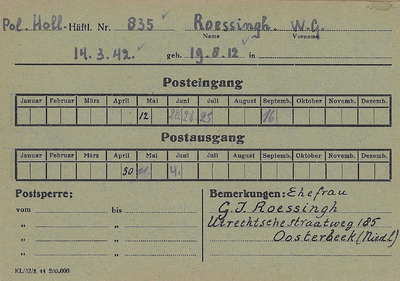 Pol. Holl-Häftl. Nr. 835 Roessingh. W.G.
Name Vorname
14.3.42. geb. 19.8.12 in
Posteingang
Januar Februar März April Mai Juni Juli August Septemb. Oktober Novemb. Dezemb.
12 28 25 16
Postausgang
Januar Februar März April Mai Juni Juli August Septemb. Oktober Novemb. Dezemb.
30 4.
Postsperre:
vom bis
" "
" "
" "
Bemerkungen: Ehefrau
G.J. Roessingh
Utrechtsche straatweg 185
Oosterbeek (Niedl)
KL/37/8. 44 200.000